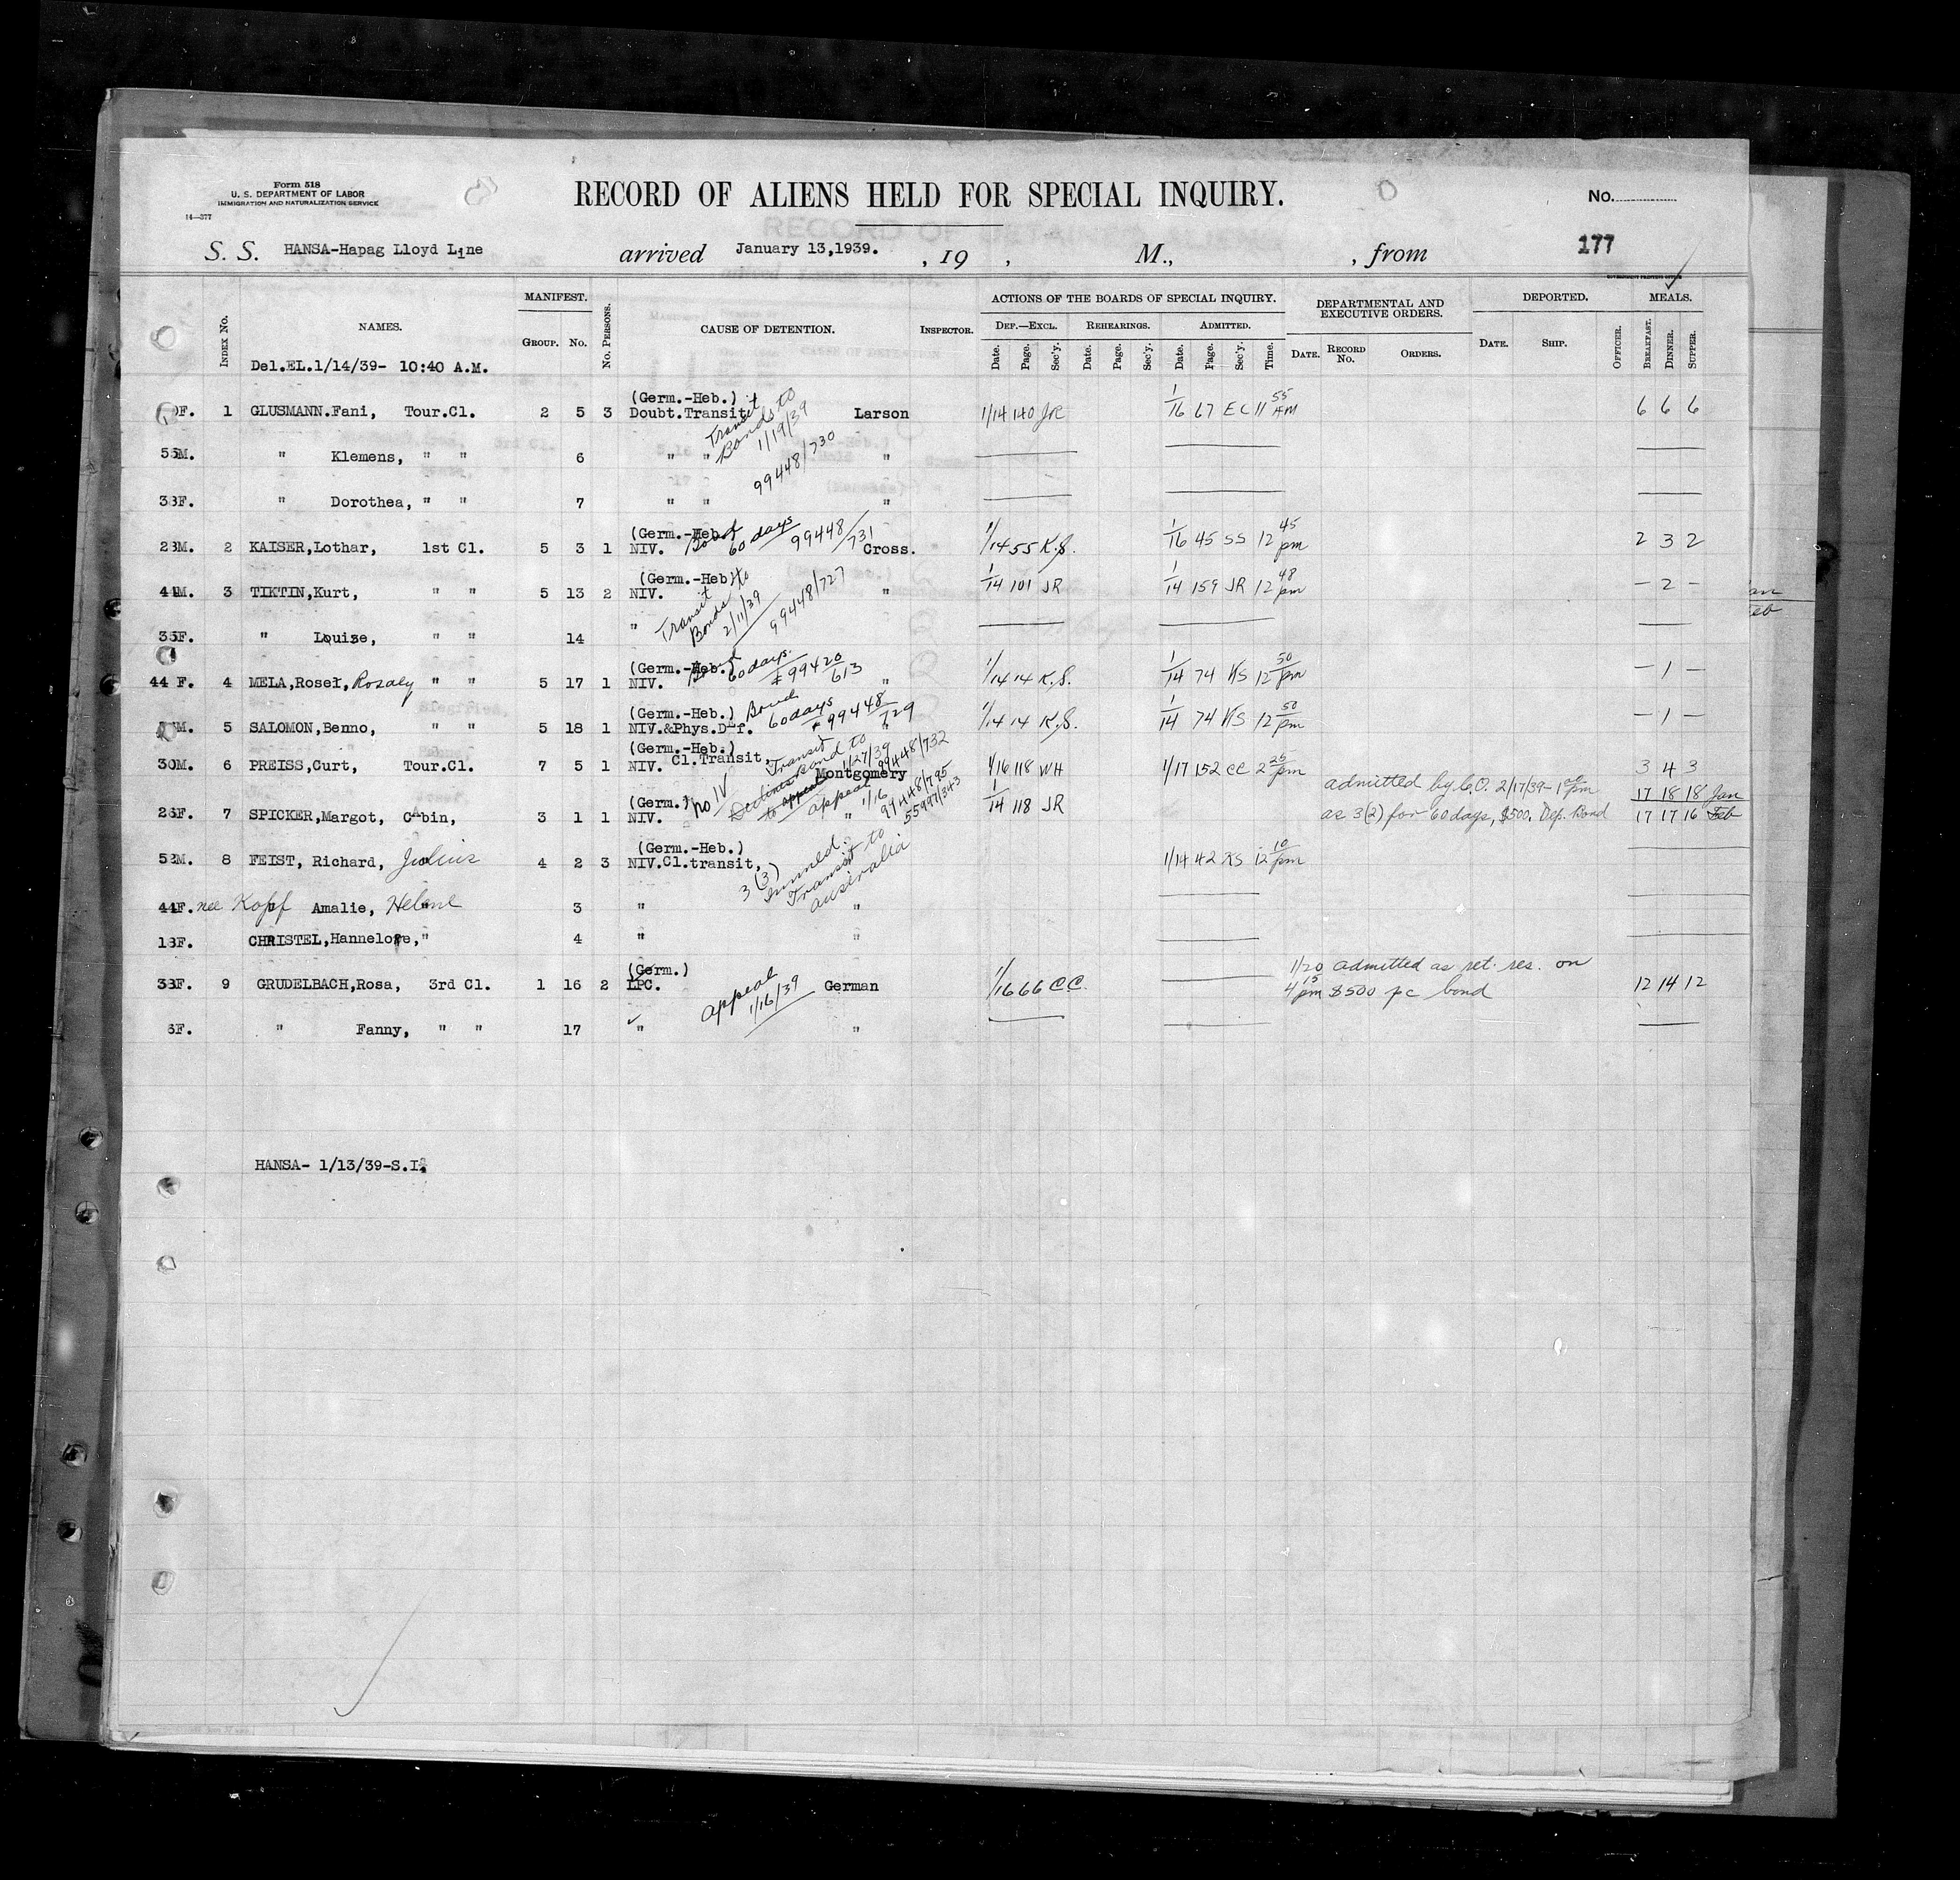 Form 518
U. S. DEPARTMENT OF LABOR
IMMIGRATION AND NATURALIZATION SERVICE
14—377
RECORD OF ALIENS HELD FOR SPECIAL INQUIRY.
No.
S. S. HANSA-Hapag Lloyd Line arrived January 13,1939. , 19 , M., , from 177
INDEX No. NAMES. MANIFEST. GROUP. No. No. PERSONS. CAUSE OF DETENTION. INSPECTOR. ACTIONS OF THE BOARDS OF SPECIAL INQUIRY. DEF.—EXCL. Date. Page. Sec'y. REHEARINGS. Date. Page. Sec'y. ADMITTED. Date. Page. Sec'y. Time. DEPARTMENTAL AND EXECUTIVE ORDERS. DATE. RECORD No. ORDERS. DEPORTED. DATE. SHIP. OFFICER. MEALS. BREAKFAST. DINNER. SUPPER.
Del.EL.1/14/39- 10:40 A.M.
(Germ.-Heb.)
F. 1 GLUSMANN.Fani, Tour.Cl. 2 5 3 Doubt.Transit Transit Bonds to 1/19/39 99448/730 Larson 1/14 140 JR 1/16 67 EC 11 55 AM 6 6 6
55M. " Klemens, " " 6 " " "
38F. " Dorothea, " " 7 " " "
(Germ.-Heb.)
28M. 2 KAISER,Lothar, 1st Cl. 5 3 1 NIV. Bond 60 days 99448/731 Cross. 1/14 55 K.S. 1/16 45 SS 12 45 pm 2 3 2
(Germ.-Heb.)
44M. 3 TIKTIN,Kurt, " " 5 13 2 NIV. Transit Bonds to 2/11/39 99448/727 " 1/14 101 JR 1/14 159 JR 12 48 pm — 2 —
35F. " Louise, " " 14 "
(Germ.-Heb.)
44 F. 4 MELA,Roser, Rosaly " " 5 17 1 NIV. Bond 60 days. # 99420/613 " 1/14 14 K.S. 1/14 74 KS 12 50 pm — 1 —
(Germ.-Heb.)
M. 5 SALOMON,Benno, " " 5 18 1 NIV.&Phys.Def. Bond 60 days # 99448/729 " 1/14 14 K.S. 1/14 74 KS 12 50 pm — 1 —
(Germ.-Heb.)
30M. 6 PREISS,Curt, Tour.Cl. 7 5 1 NIV. Cl.Transit, Transit bond to 1/27/39 99448/732 Montgomery 1/16 118 WH 1/17 152 CC 2 25 pm 3 4 3
(Germ.)
26F. 7 SPICKER,Margot, Cabin, 3 1 1 NIV. no IV Declines to appeal appeal 1/16 99448/795 55997/343 " 1/14 118 JR admitted by C.O. 2/17/39- 1 pm 17 18 18 Jan
as 3(2) for 60 days, $500. Dep. Bond 17 17 16 Feb
(Germ.-Heb.)
52M. 8 FEIST, Richard, Julius 4 2 3 NIV.Cl.transit, 3(3) Transit to Australia 1/14 42 KS 12 10 pm
44F. nee Kopf Amalie, Helene 3 " "
18F. CHRISTEL,Hannelore," 4 " "
(Germ.)
38F. 9 GRUDELBACH,Rosa, 3rd Cl. 1 16 2 LPC. appeal 1/16/39 German 1/16 66 CC. 1/20 admitted as ret. res. on
4 15 pm $500 pc bond 12 14 12
6F. " Fanny, " " 17 " "
HANSA- 1/13/39-S.I.